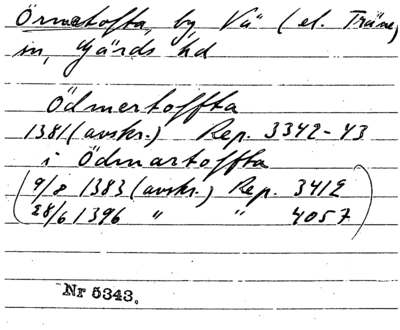 Örmetofta, by, Vä (el. Träne)
sn, Gärds hd
Ödmertoffta
1381 (avskr.) Rep. 3342-43
i Ödmartoffta
(9/8 1383 (avskr.) Rep. 3412
28/6 1396 " " 4057)
Nr 5343.